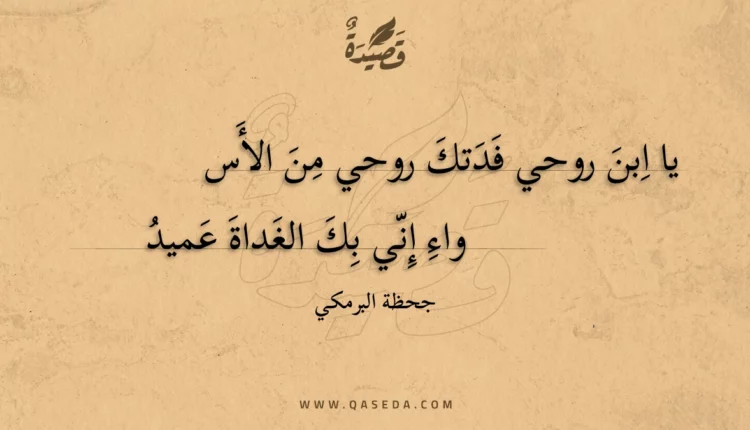 قَصِيْدَةٌ
يا اِبنَ روحي فَدَتكَ روحي مِنَ الأَس
واءِ إِنّي بِكَ الغَداةَ عَميدُ
جحظة البرمكي
WWW.QASEDA.COM